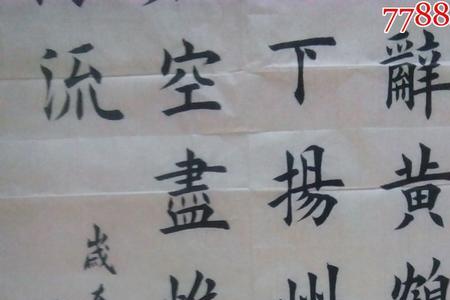 7788
辭黄鶴
下揚州
空盡
流
歲